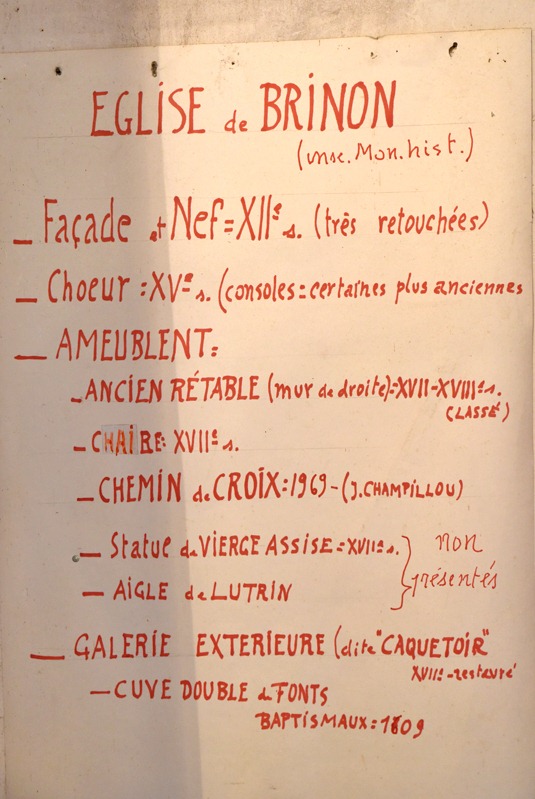 EGLISE de BRINON
(insc. Mon. hist.)
— Façade et Nef = XIIe s. (très retouchées)
— Choeur : XVe s. (consoles = certaines plus anciennes
— AMEUBLENT :
— ANCIEN RÉTABLE (mur de droite) = XVII-XVIIIe s.
(CLASSÉ)
— CHAIRE : XVIIe s.
— CHEMIN de CROIX : 1969 - (J. CHAMPILLOU)
— Statue de VIERGE ASSISE = XVIIe s. } non
— AIGLE de LUTRIN } présentés
— GALERIE EXTERIEURE (dite "CAQUETOIR"
XVIIe - restauré
— CUVE DOUBLE de FONTS
BAPTISMAUX = 1609